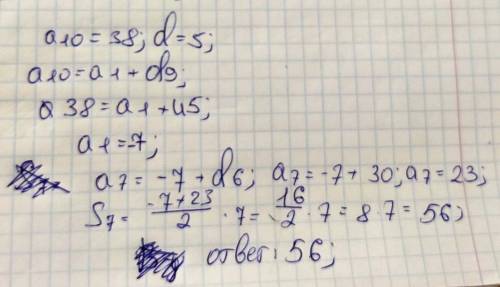 a10 = 38; d = 5;
a10 = a1 + d9;
38 = a1 + 45;
a1 = -7;
a7 = -7 + d6; a7 = -7 + 30; a7 = 23;
S7 = \frac{-7+23}{2} · 7 = \frac{16}{2} · 7 = 8 7 = 56;
ответ: 56;